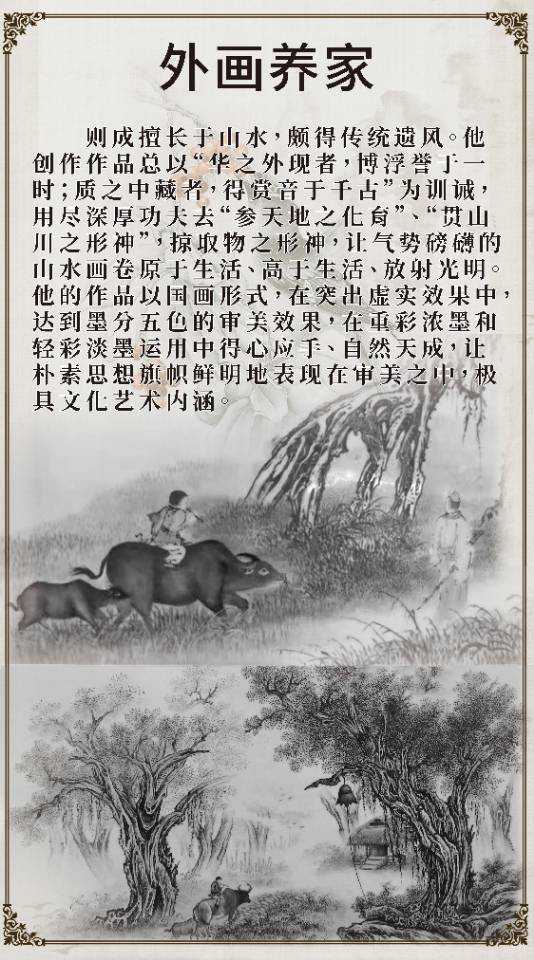 外画养家
则成擅长于山水，颇得传统遗风。他
创作作品总以“华之外现者，博浮誉于一
时；质之中藏者，得赏音于千古”为训诫，
用尽深厚功夫去“参天地之化育”、“贯山
川之形神”，掠取物之形神，让气势磅礴的
山水画卷原于生活、高于生活、放射光明。
他的作品以国画形式，在突出虚实效果中，
达到墨分五色的审美效果，在重彩浓墨和
轻彩淡墨运用中得心应手、自然天成，让
朴素思想旗帜鲜明地表现在审美之中，极
具文化艺术内涵。